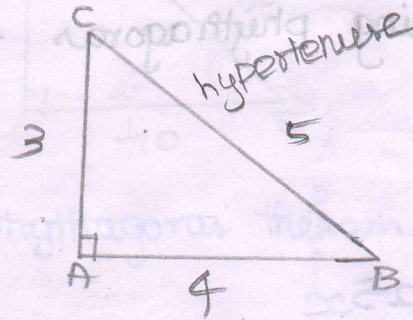 C
hypertenuse
3
5
A
4
B